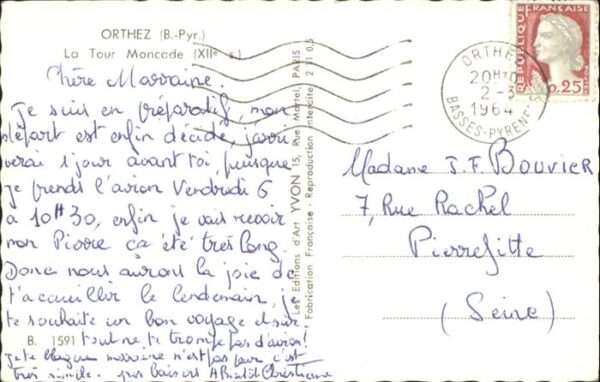 ORTHEZ (B.-Pyr.)
La Tour Moncade (XIIe s.)
Chère Marraine.
Je suis en préparatif, mon
départ est enfin décidé, j'arri
verai 1 jour avant toi, puisque
je prends l'avion Vendredi 6
à 10H30, enfin je vais revoir
mon Pierre ça été très long.
Donc nous aurons la joie de
t'accueillir le lendemain, je
te souhaite un bon voyage
tout ne te trompe pas d'avion!
je te blague marraine n'est pas peur c'est
très simple. gros baisers A Bientôt Christiane
B. 1591
Les Editions d'Art YVON 15, Rue Martel, PARIS
Fabrication Française - Reproduction Interdite
REPUBLIQUE FRANÇAISE
0,25
ORTHEZ
20H
2-3
1964
BASSES-PYRENEES
Madame J.F BOUVIER
7, Rue Rachel
Pierrefitte
(Seine)